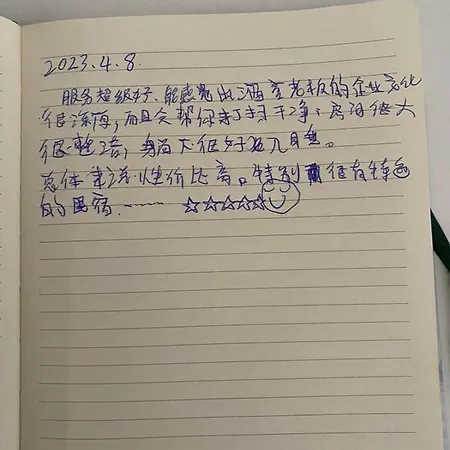 2023.4.8.
服务超级好、能感觉出酒店老板的企业文化
很深厚,而且会帮你打扫干净,房间很大
很整洁,
总体来说性价比高。特别 很有特色
的民宿.…… ☆☆☆☆☆